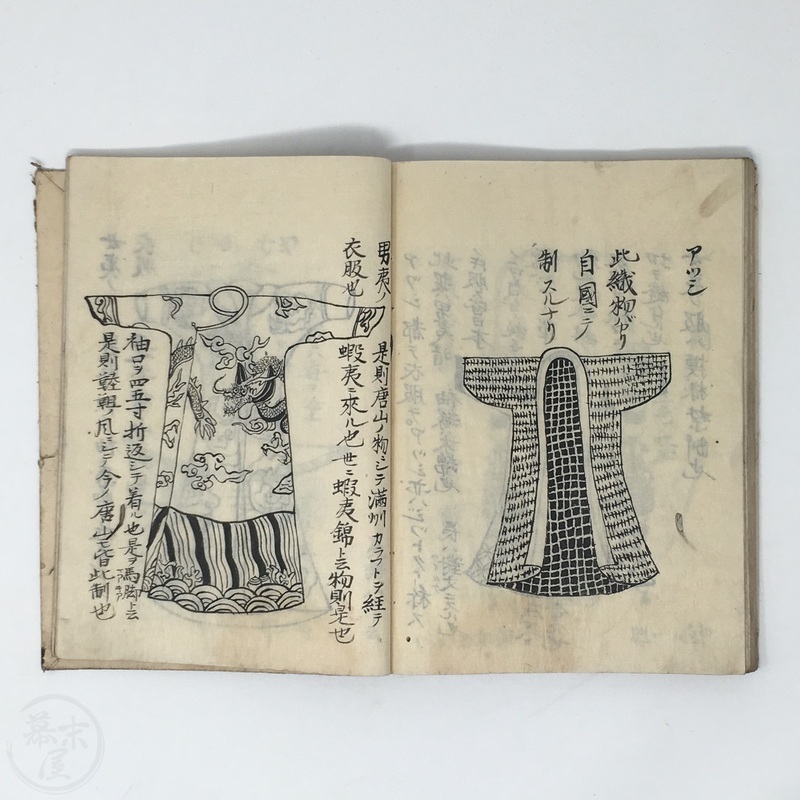 アツシ
此織物バカリ
自國ニテ
制スルナリ
男夷ノ
衣服也
是則唐山ノ物ニシテ滿州カラフトヲ経テ
蝦夷ニ來ル也 世ニ蝦夷錦ト云物則是也
袖口ヲ四五寸折返シテ着ル也是ヲ ト云
是則韃靼ノ風ニシテ今ノ唐山モ皆此制也
幕末屋